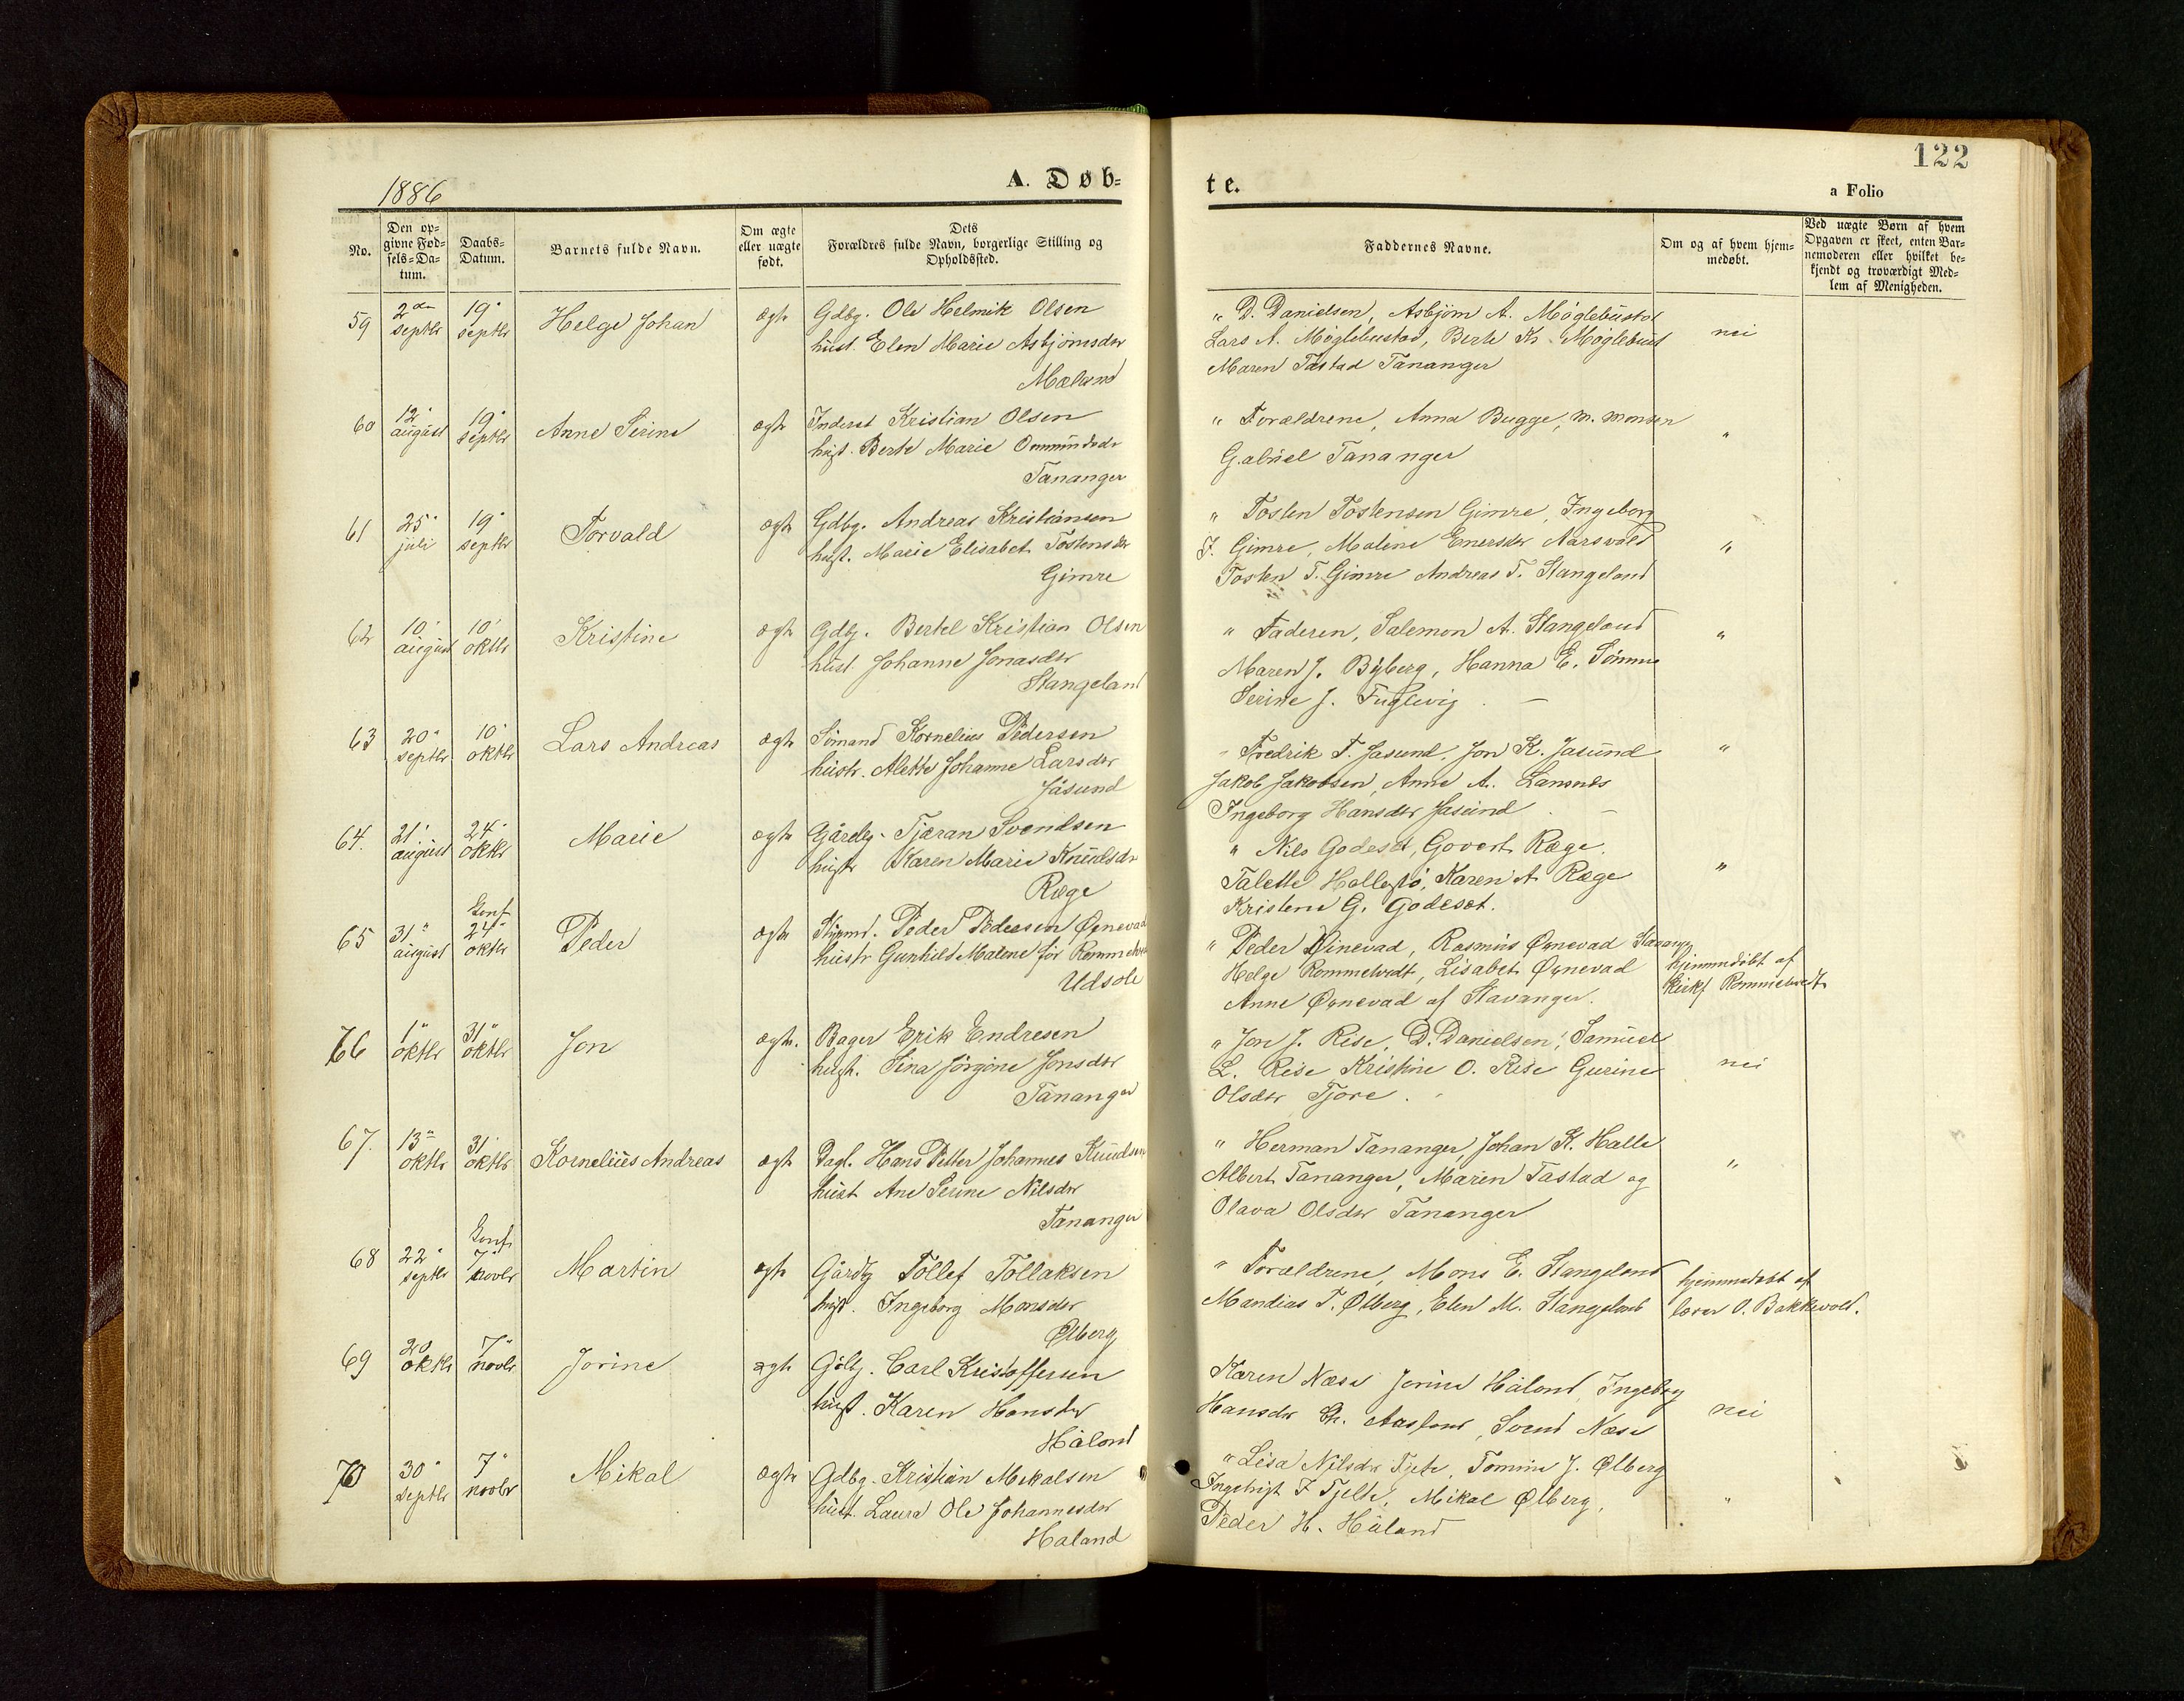 122
1886
A. Døb-
te.
a Folio
No.
Den op-
givne Fød-
sels-Da-
tum.
Daabs-
Datum.
Barnets fulde Navn.
Om ægte
eller uægte
født.
Dets
Forældres fulde Navn, borgerlige Stilling og
Opholdssted.
Faddernes Navne.
Om og af hvem hjem-
medøbt.
Ved uægte Børn af hvem
Opgaven er skeet, enten Bar-
nemoderen eller hvilket be-
kjendt og troværdigt Med-
lem af Menigheden.
59 2den septbr 19" septbr Helge Johan ægte Gdbg. Ole Helmik Olsen
hust. Elen Marie Asbjørnsdtr
Mæland
" D. Danielsen, Asbjørn A. Møglebustad
Lars A. Møglebustad, Berte K. Møglebust
Maren Tastad Tananger
nei
60 12" august 19" septbr Anne Serine ægte Inderst Kristian Olsen
hust. Berte Marie Ommundsdr
Tananger
" Forældrene, Anna Bugge, M. Monsen
Gabriel Tananger
"
61 25" juli 19" septbr Torvald ægte Gdbg. Andreas Kristiansen
hust. Marie Elisabet Tostensdr
Gimre
" Tosten Tostensen Gimre, Ingeborg
T. Gimre, Malene Enersdr Aarsvold
Tosten T. Gimre Andreas T. Stangeland
"
62 10' august 10' oktbr Kristine ægte Gdbg. Bertel Kristian Olsen
hust. Johanne Jonasdtr
Stangeland
" Faderen, Salemon A. Stangeland
Maren J. Byberg, Hanna E. Sømme
Serine J. Fuglevig
"
63 20" septbr 10' oktbr Lars Andreas ægte Sømand Kornelius Pedersen
hustr. Alette Johanne Larsdtr
Jåsund
" Fredrik T. Jasund, Jon K. Jasund
Jakob Jakobsen, Anne A. Lansnes
Ingeborg Hansdtr Jasund
"
64. 21' august 24" oktbr Marie ægte Gårdbg. Tjæran Svendsen
hustr Karen Marie Knudsdr
Ræge
" Nils Godeset, Govert Ræge.
Talette Hollestø, Karen A Ræge
Kristens G. Godeset.
"
65 31" august Konf. 24" oktbr Peder ægte Peder Pedersen Øvnevad
hustr Gunhild Malene før Rommetvedt
Udsole
" Peder Øvnevad, Rasmus Øvnevad Stavanger
Helge Rommetvedt, Lisabet Øvnevad
Anne Øvnevad af Stavanger.
hjemmedøbt af
Kirks. Rommetvedt
66 1" oktbr 31" oktbr Jon ægte. Bager Erik Endresen
hust. Sina Jørgine Jonsdtr
Tananger
" Jon J. Rise, D. Danielsen, Samuel
L. Rise Kristine O. Rise Gurine
Olsdtr Tjore.
nei
67. 13" oktbr 31' oktbr Kornelius Andreas ægte Dagl. Hans Petter Johannes Knudsen
hust Ane Serine Nilsdtr
Tananger
" Herman Tananger, Johan K. Halle
Albert Tananger, Maren Tastad og
Olava Olsdtr Tananger
"
68 22" septbr Konf. 7" novbr Martin ægte Gårdbg Tollef Tollaksen
hust. Ingeborg Monsdtr
Ølberg
" Forældrene, Mons E. Stangeland
Mandias T. Ølberg, Elen M. Stangeland
hjemmedøbt af
lærer O. Bakkevold.
69 20 oktbr 7" novbr Jorine ægte Gdbg. Carl Kristoffersen
hust. Karen Hansdtr
Håland
Karen Næse Jorine Håland, Ingeborg
Hansdtr Ch. Aasland, Svend Næse
nei
70 30" septbr 7" novbr Mikal ægte Gdbg. Kristian Mikalsen
hust. Laura Ole Johannesdtr
Haland
" Lisa Nilsdtr Tjelte, Tomine J. Ølberg
Ingebrigt I Tjelte, Mikal Ølberg,
Peder H. Håland
"